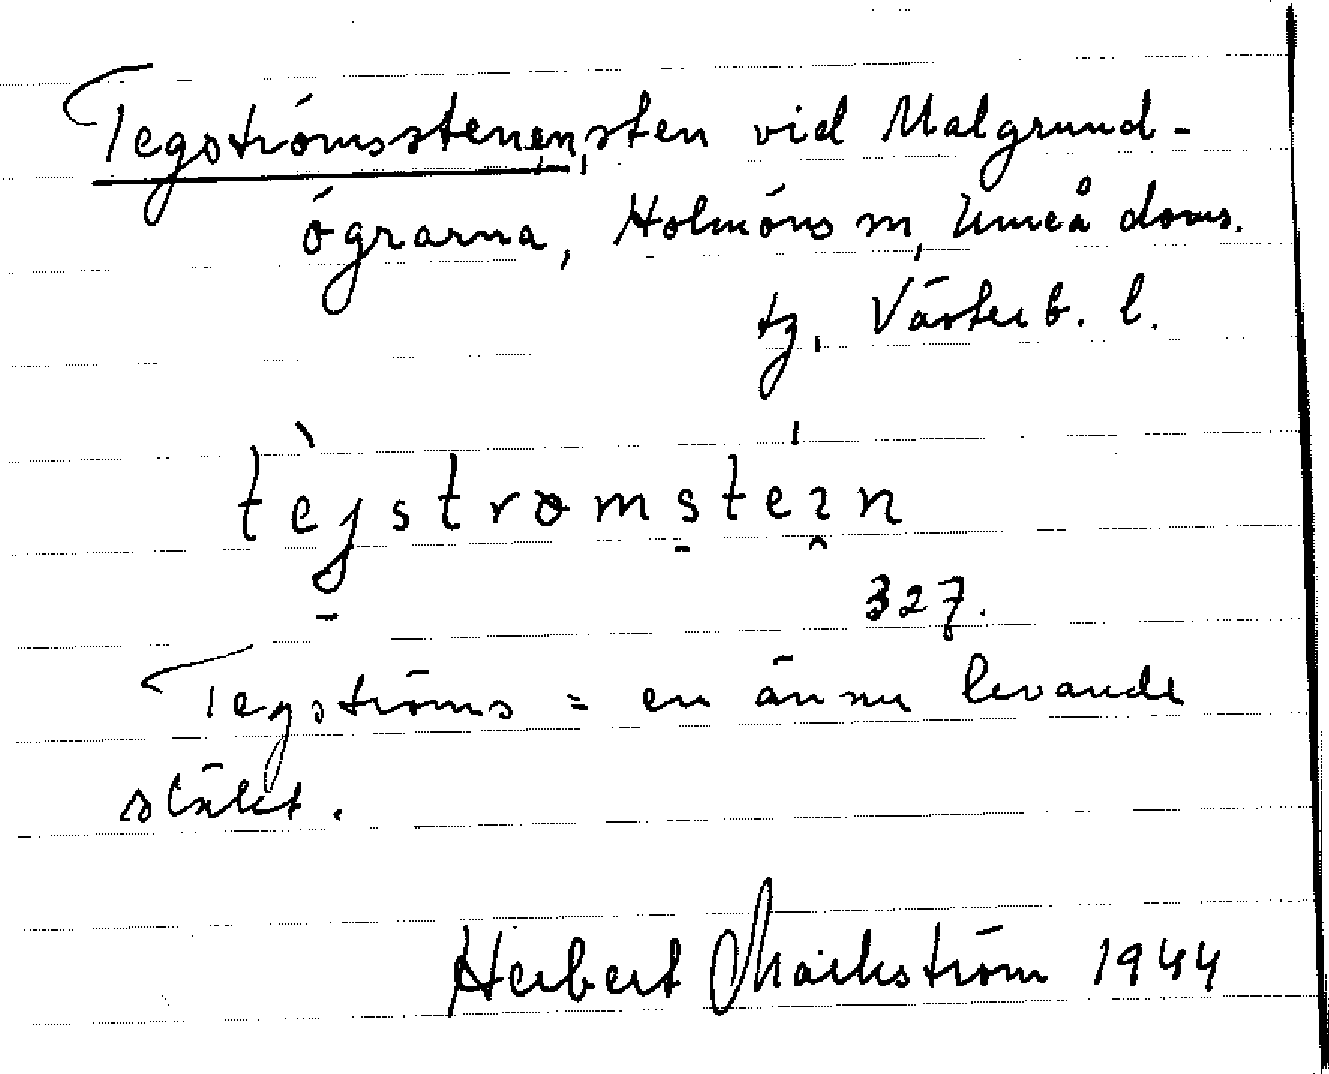 Tegströmsstenen, sten vid Malgrund-
ögrarna, Holmöns sn, Umeå doms.
tg, Västerb. l.
tègstrømsteın
327.
Tegströms = en ännu levande
släkt.
Herbert Markström 1944